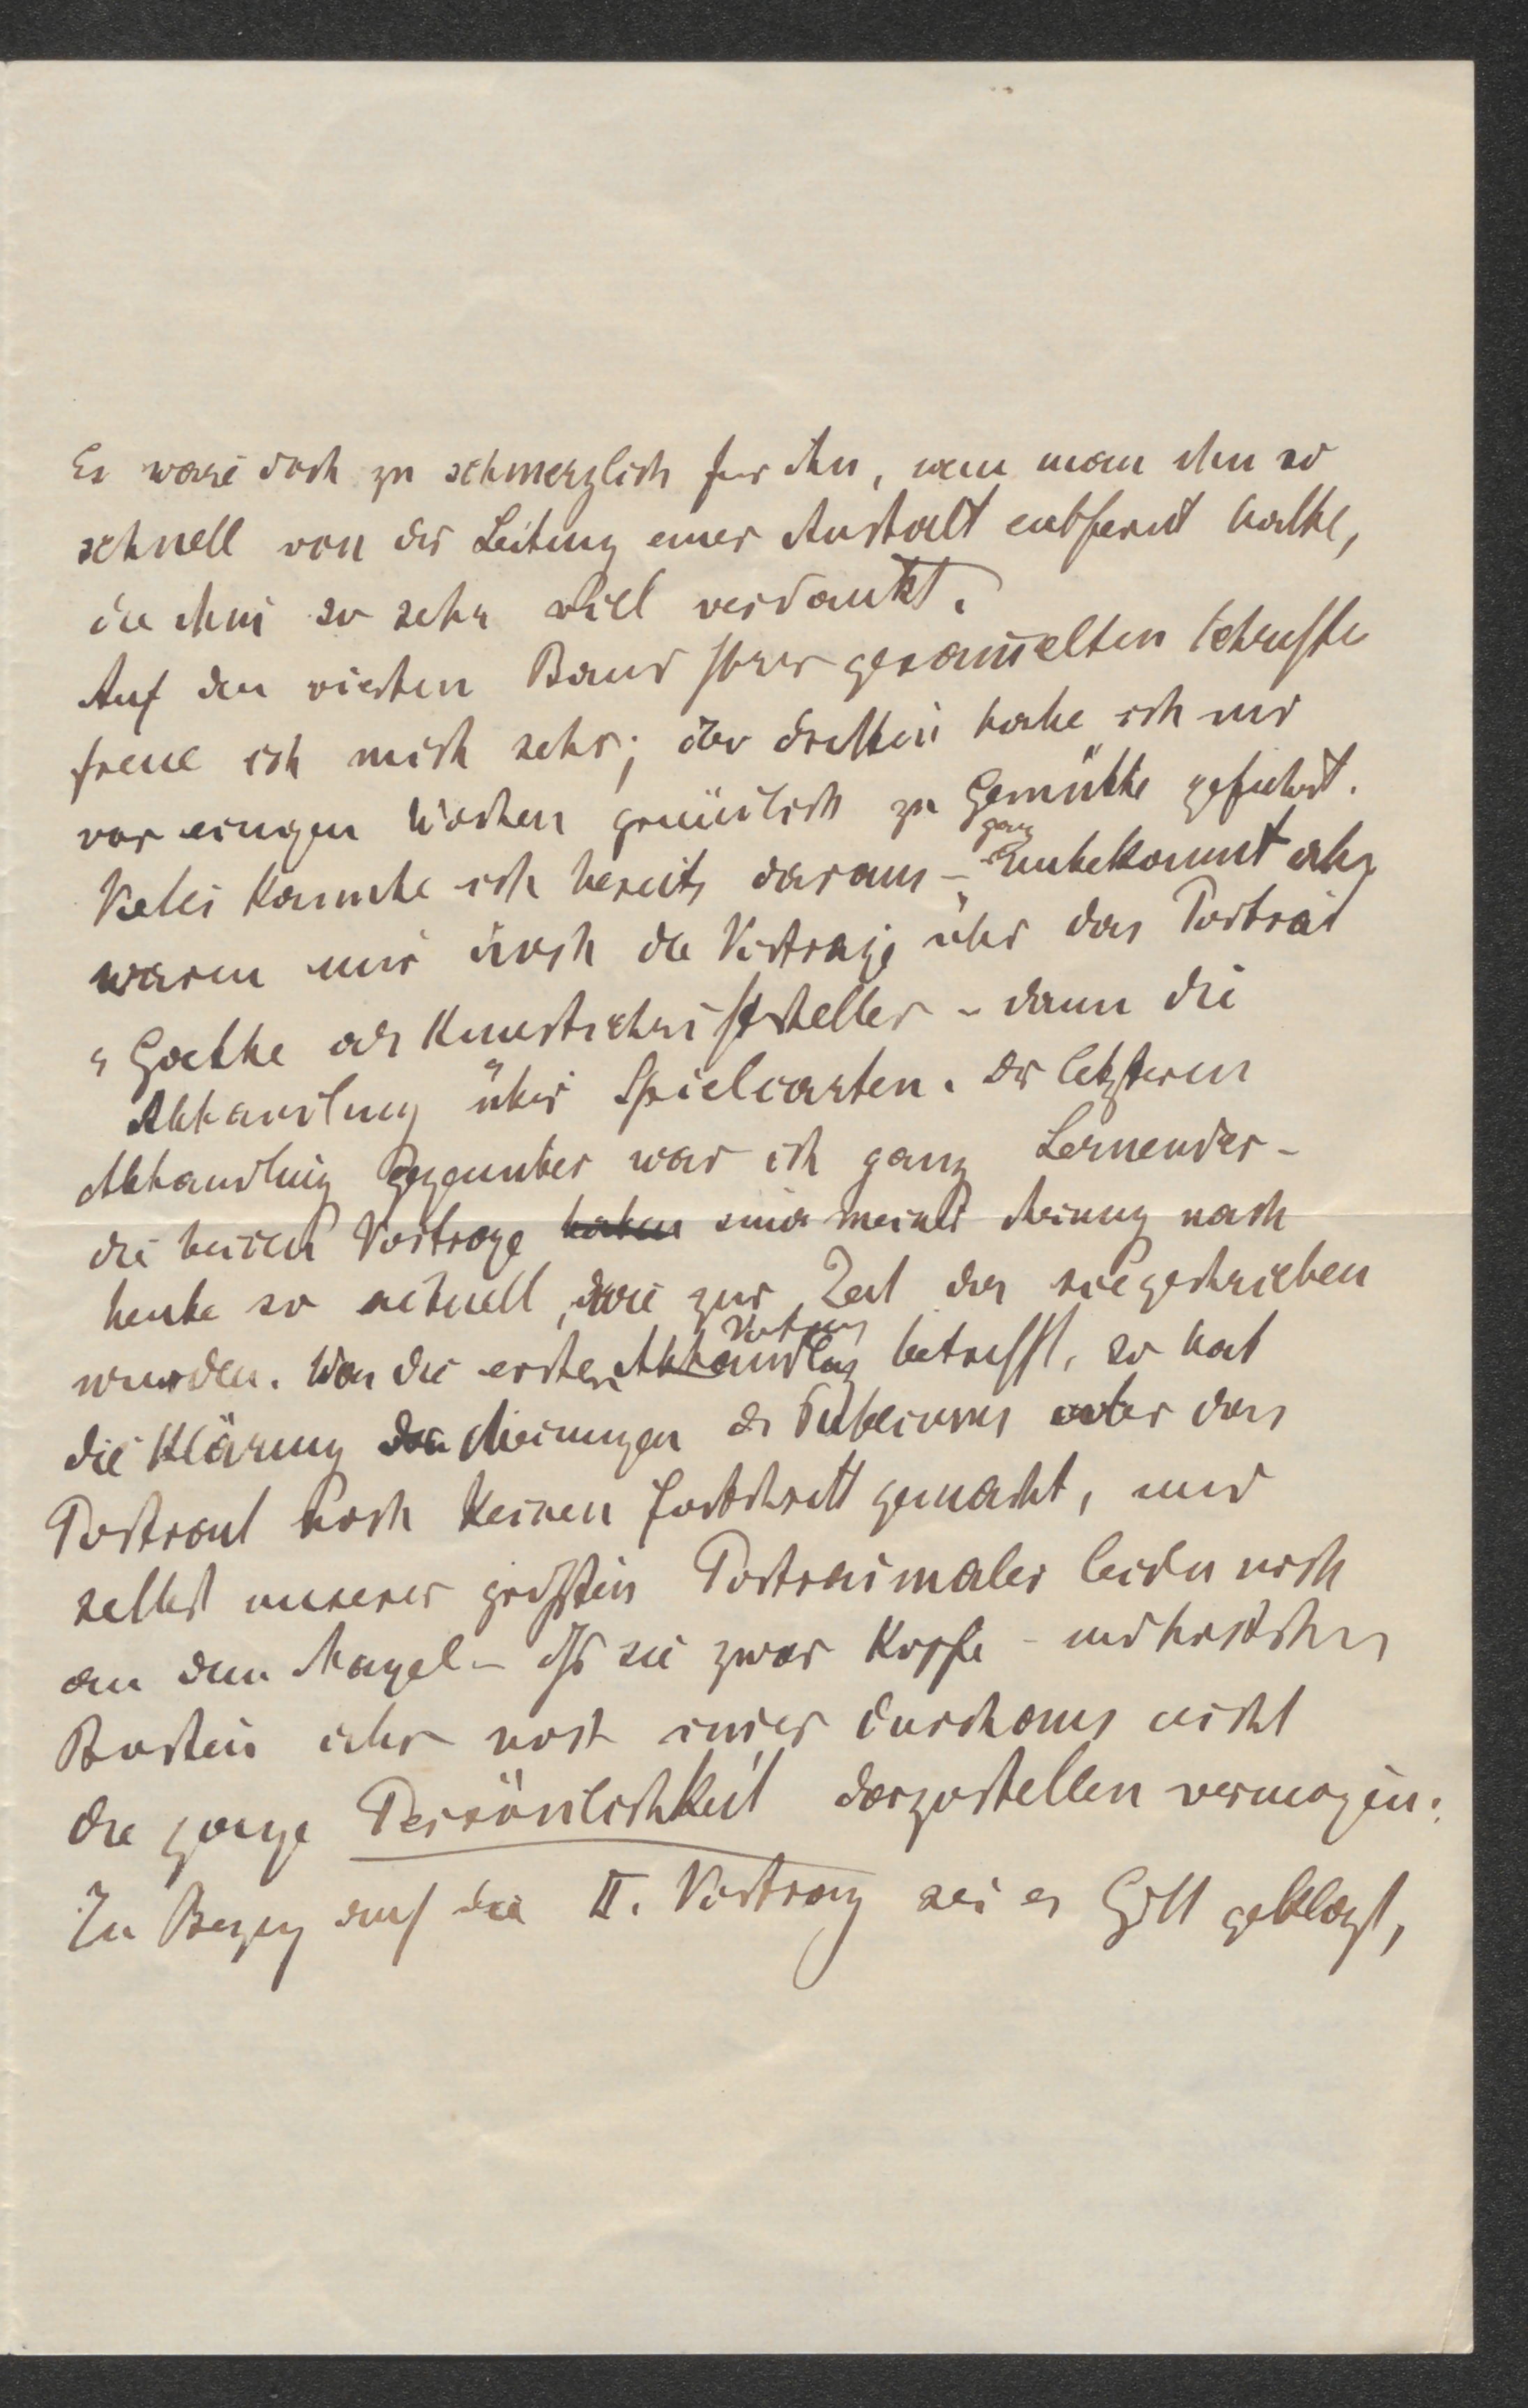 Es wäre doch zu schmerzlich für ihn, wenn man ihn so
schnell von der Leitung einer Anstalt entfernt hätte,
die ihm so sehr viel verdankt.
Auf den vierten Band Ihrer gesam̄elten Schriften
freue ich mich sehr; den dritten habe ich mir
vor einigen Wochen gemütlich zu Gemüthe geführt.
Vieles kannte ich bereits daraus – ganz unbekannt aber
waren mir noch die Vorträge über das Porträt
„Goethe als Kunstschriftsteller – dann die
Abhandlung über Spielcarten. Der letzteren
Abhandlung gegenüber war ich ganz Lernender –
die beiden Vorträge haben sind meiner Meinung nach
heute so actuell, wie zur Zeit da sie geschrieben
wurden. Was die ersten Abhandlung Vortrag betrifft, so hat
die Klärung der Meinungen des Publicums über das
Portrait noch keinen Fortschritt gemacht, und
selbst unserer größten Portraimaler leiden noch
an dem Mangel – daß sie zwar Köpfe –
Büsten aber noch im̄er durchaus nicht
die ganze Persönlichkeit darzustellen vermögen.
In Bezug auf den II. Vortrag sei es Gott geklagt,